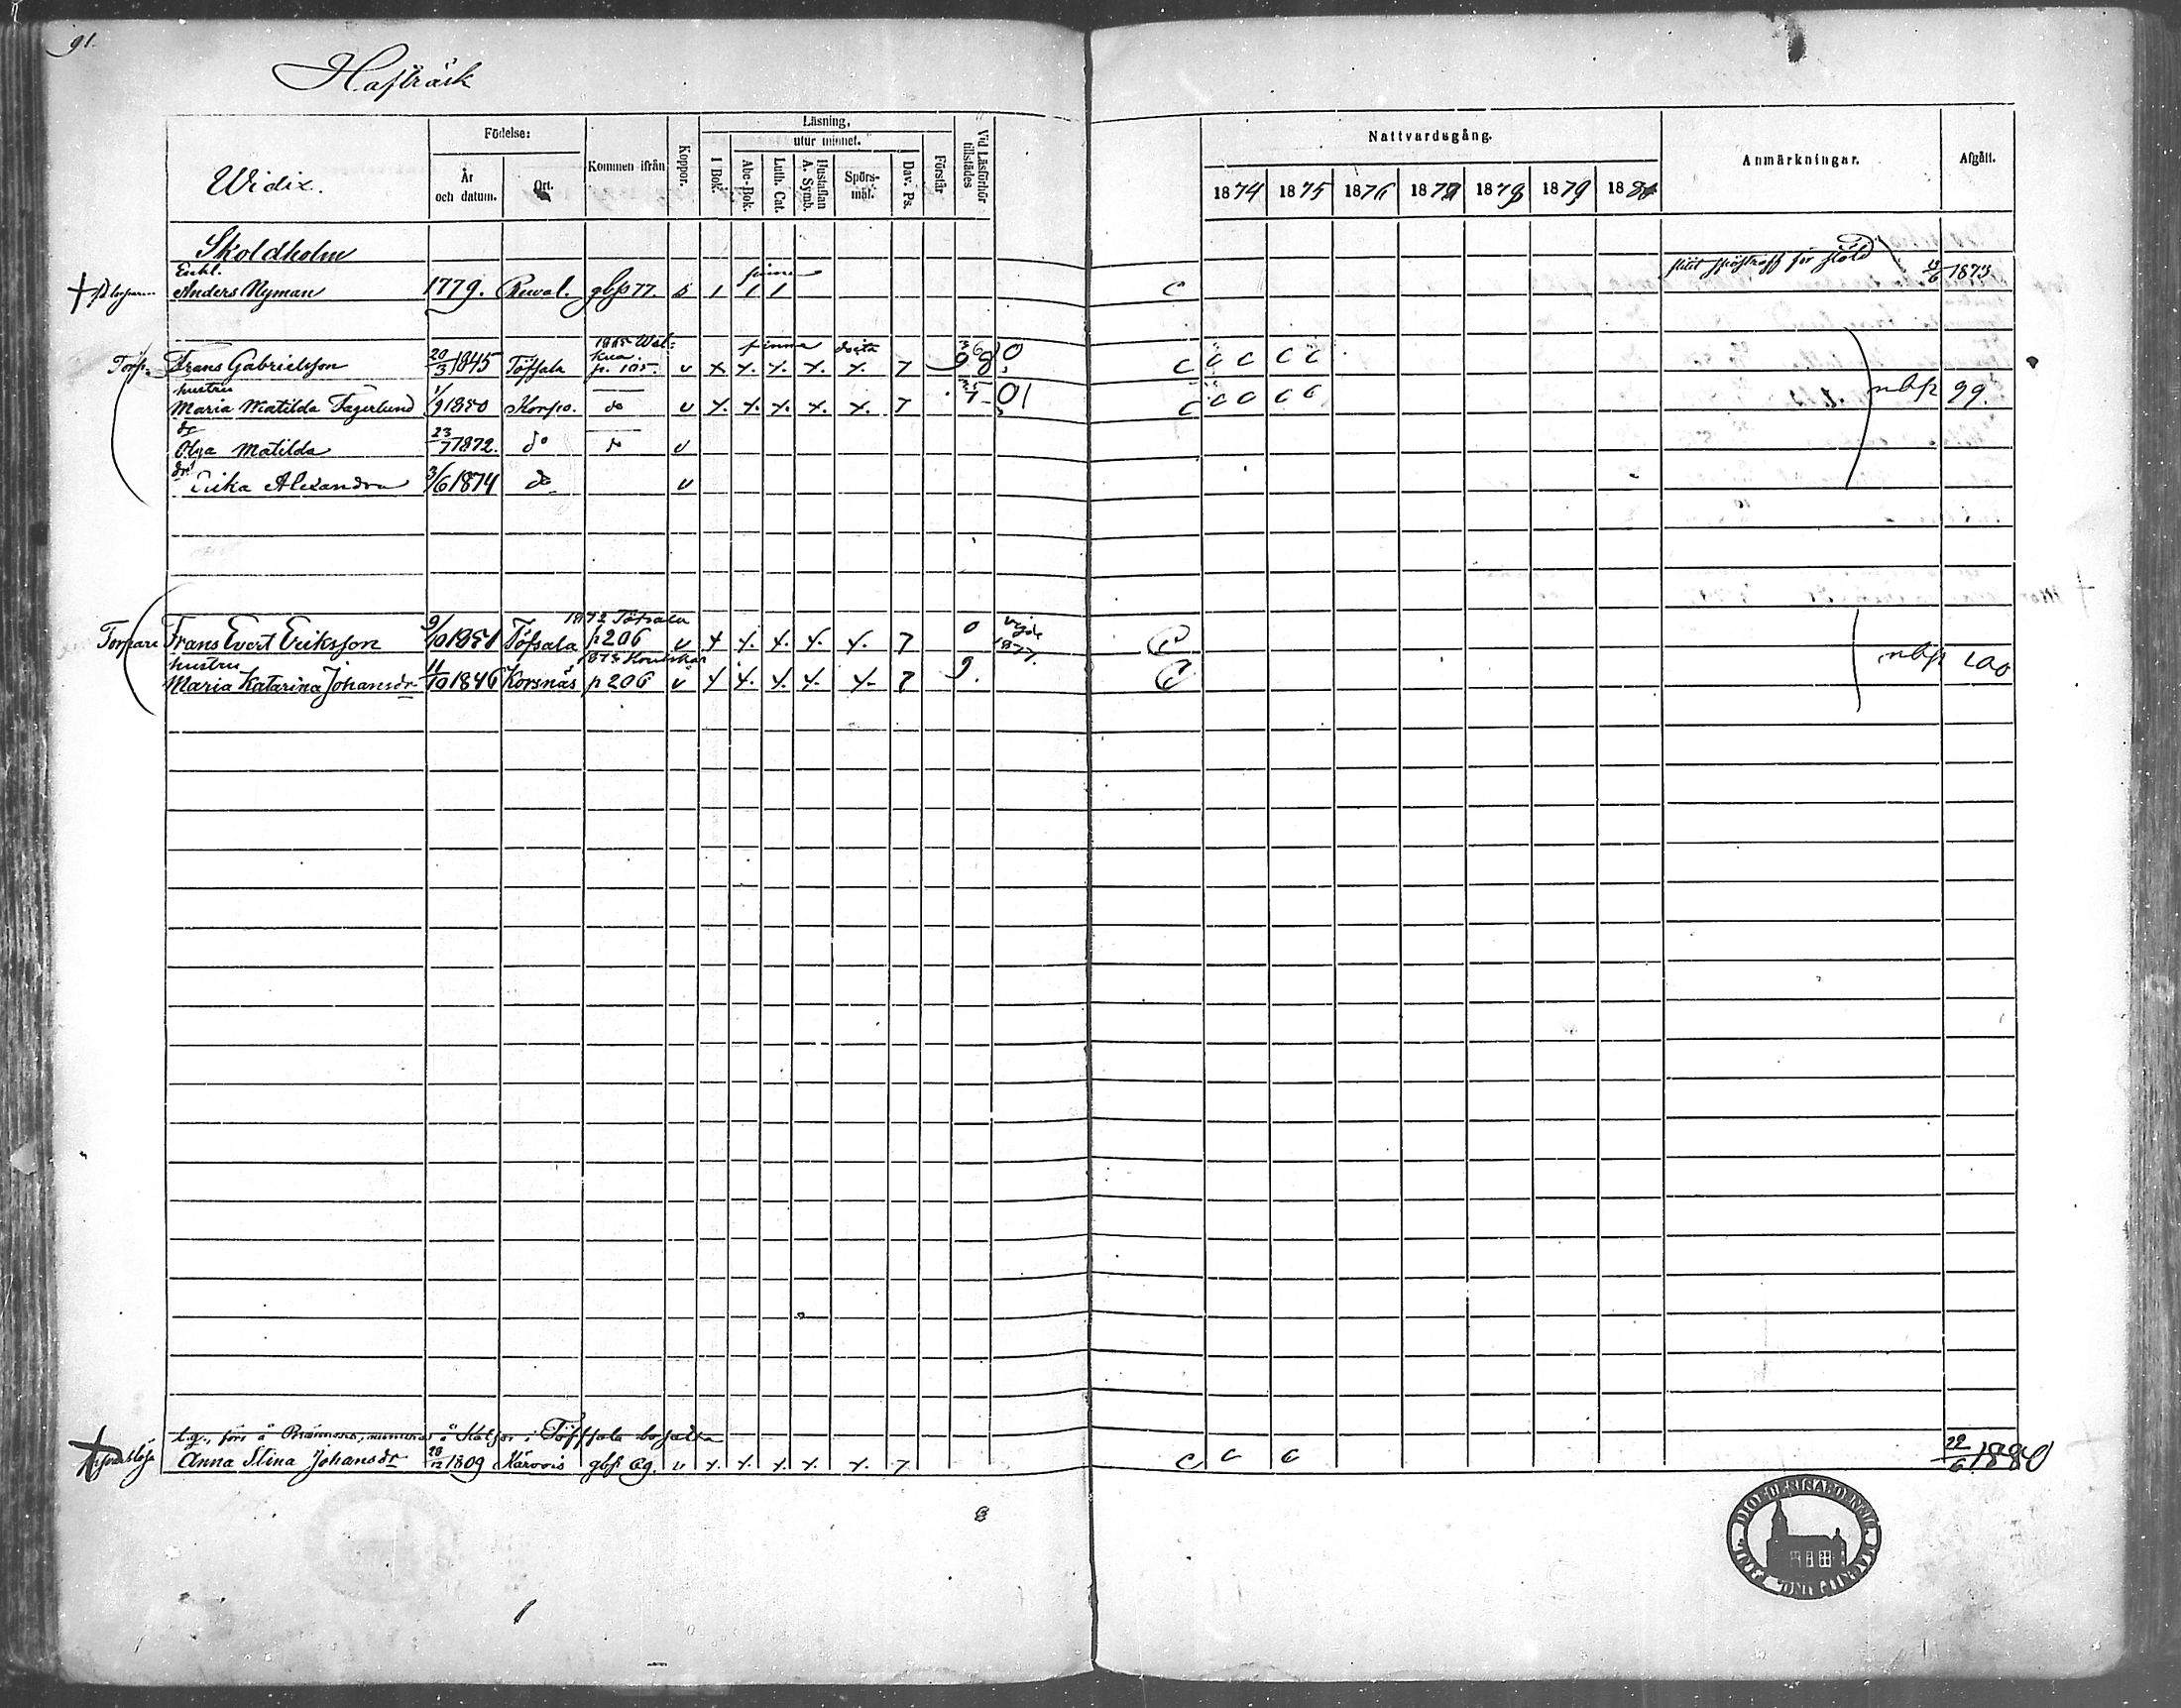 91.
Hafträsk
Widix.
Födelse:
År och datum.
Ort.
Kommen ifrån
Koppor.
Läsning,
I Bok.
utur minnet.
Abc-Bok.
Luth. Cat.
Hustaflan A. Symb.
Spörs-mål.
Dav. Ps.
Förstår
Vid Läsförhör tillstädes
Nattvardsgång.
1874 1875 1876 1877 1878 1879 1880
Anmärkningar.
Afgått.
Skoldholm
Enkl.
Anders Nyman 1779. Rewal. gbp 77. s 1 1 1 c för stöld 1873
Torp. Frans Gabrielsson 20/3 1845 Töfsala p. 105 v x x. x. x. x. 7 98 0 c c c c c
hustru
Maria Matilda Fagerlund 1/9 1850 Korpo. do v x. x. x. x. x. 7 01 c c c c c nbp 99.
dr
Olga Matilda 23/7 1872. do do v
dr
Erika Alexandra 3/6 1874 do v
1872 Töfsala
Torpare Frans Evert Eriksson 9/10 1851 Töfsala p 206 v x x. x. x. x. 7 0 vigde 1877. C
hustru
Maria Katarina Johansdr 11/10 1846 Korsnäs p 206 v x x. x. x. x. 7 9. C nbp 100
i Töfsala
Anna Stina Johansdr 28/12 1809 gbp 69. v x. x. x. x. x. 7 c c c 22/6 1880
8